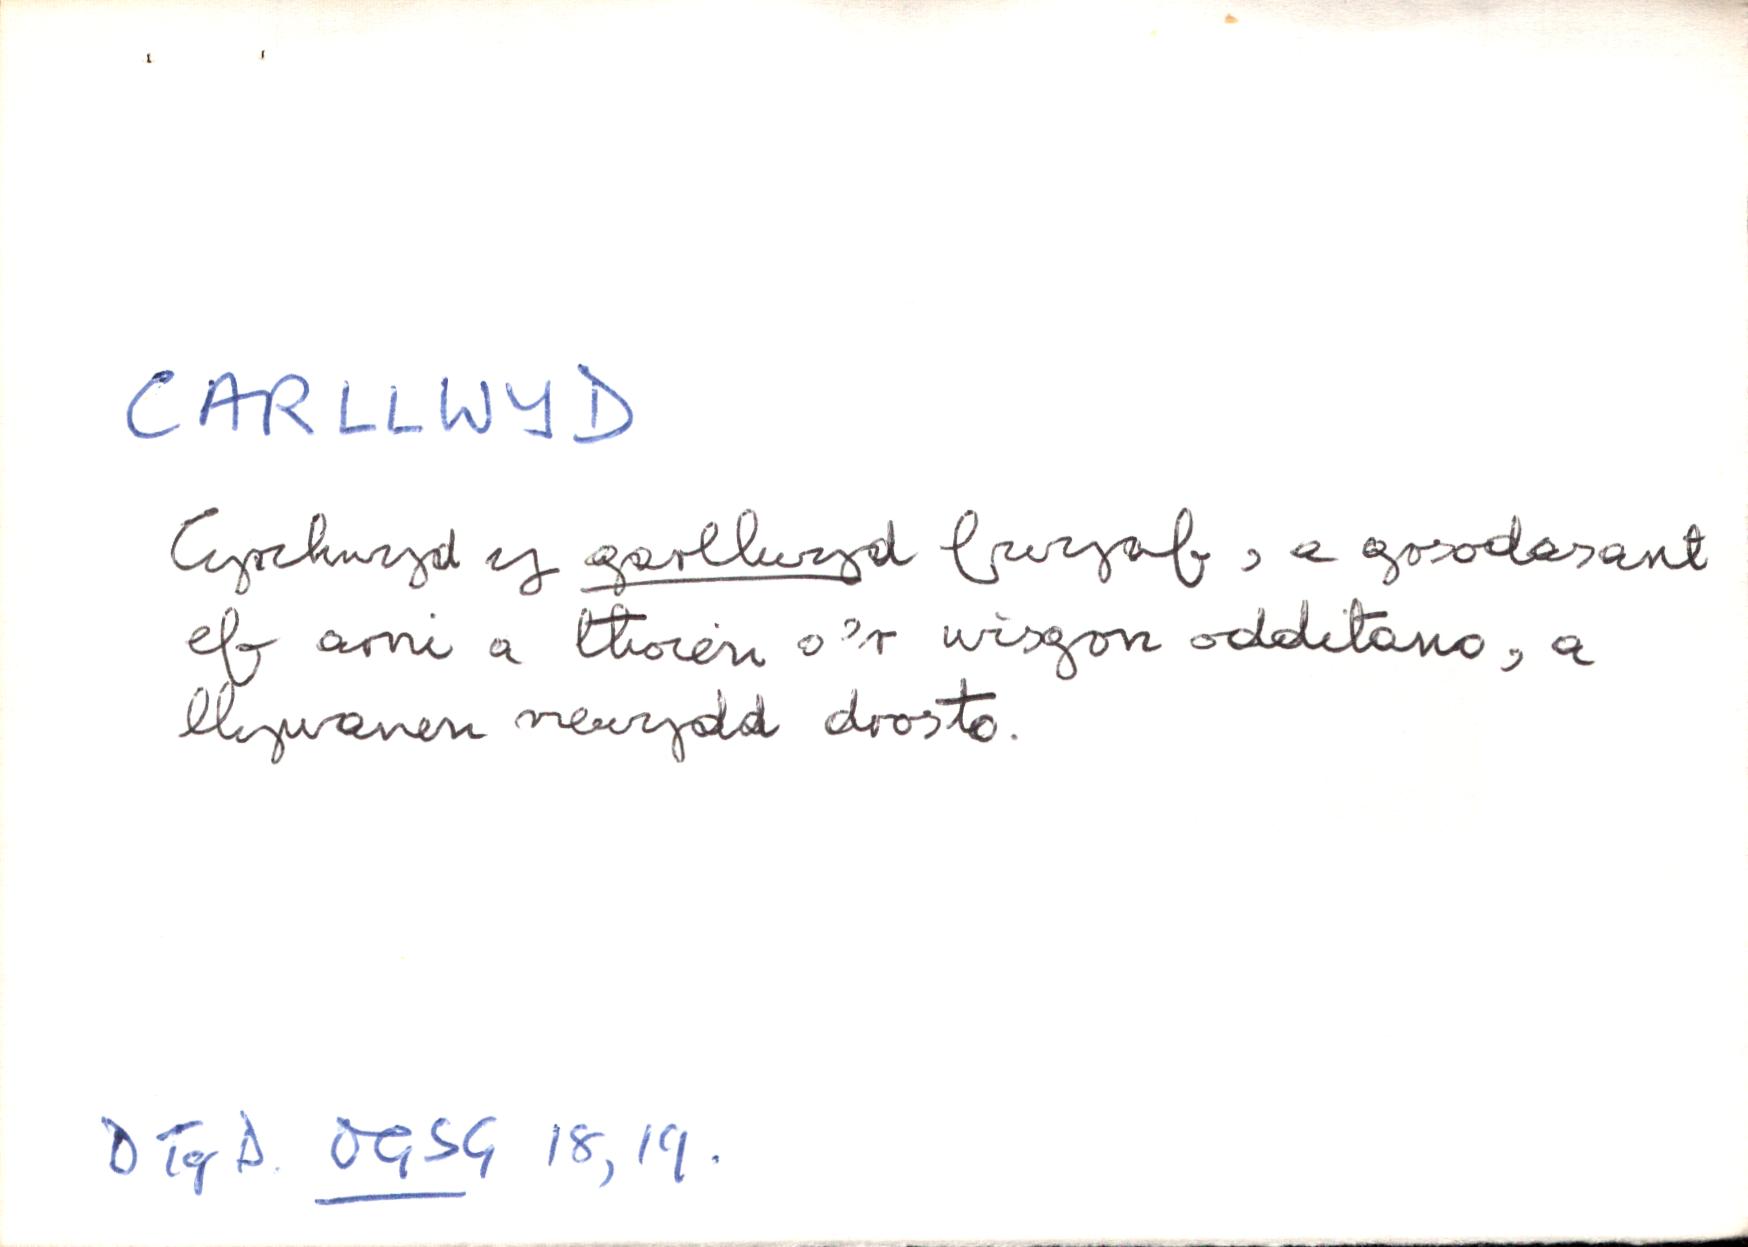 CARLLWYD
Cyrchwyd y garllwyd fwyaf, a gosodasant
ef arni a thorèn o'r wisgon odditano, a
llywanen newydd drosto.
D Tg D. OGSG 18, 19.